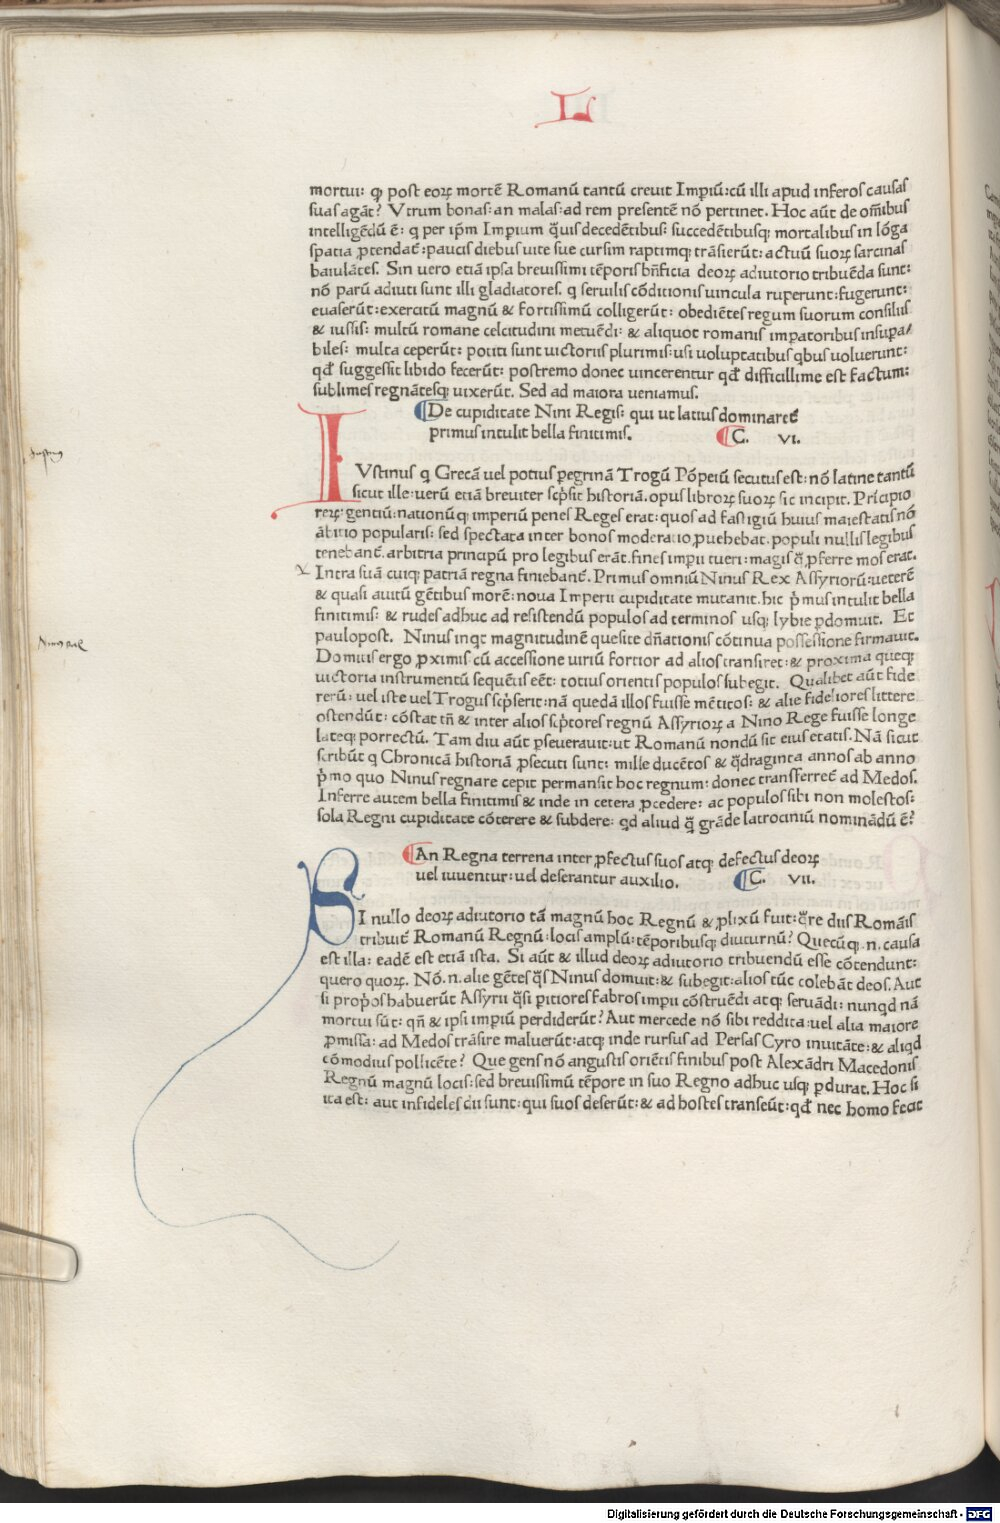 L
mortui: qꝫ post eoꝝ mortē Romanū tantū creuit Imperiū: cū illi apud inferos causas
suas agāt? Vtrum bonas: an malas: ad rem presentē nō pertinet. Hoc aūt de om̄ibus
intelligēdū ē: q per ip̄m Imperium q̄uis decedētibus: succedētibusqꝫ mortalibus in lōga
spatia ꝓtendat᷑: paucis diebus uite sue cursim raptimqꝫ trāsierūt: actuū suoꝝ sarcinas
baiulātes. Sin uero etiā ipsa breuissimi tēporis bn̄ficia deoꝝ adiutorio tribuēda sunt:
nō parū adiuti sunt illi gladiatores. q seruilis cōditionis uincula ruperunt: fugerunt:
euaserūt: exercitū magnū & fortissimū colligerūt: obediētes regum suorum consiliis
& iussis: multū romane celcitudini metuēdi: & aliquot romanis imꝑatoribus insuꝑa/
biles: multa ceperūt: potiti sunt uictoriis plurimis: usi uoluptatibus qbus uoluerunt:
qd̄ suggessit libido fecerūt: postremo donec uincerentur qd̄ difficillime est factum:
sublimes regnātesqꝫ uixerūt. Sed ad maiora ueniamus.
De cupiditate Nini Regis: qui ut latius dominaret᷑
primus intulit bella finitimis. C. VI.
Iustinus
IVstinus q Grecā uel potius ꝑegrinā Trogū Pōpeiū secutus est: nō latine tantū
sicut ille: uerū etiā breuiter scp̄sit historiā. opus libroꝝ suoꝝ sic incipit. Pr̄icipio
rerꝝ: gentiū: nationūqꝫ imperiū penes Reges erat: quos ad fastigiū huius maiestatis nō
ābitio popularis: sed spectata inter bonos moderatio ꝓuehebat. populi nullis legibus
tenebant᷑. arbitria principū pro legibus erāt. fines imperii tueri: magis q̄ ꝓferre mos erat.
Intra suā cuiqꝫ patriā regna finiebant᷑. Primus omniū Ninus Rex Assyriorū: ueterē
& quasi auitū gētibus morē: noua Imperii cupiditate mutauit. hic p̄mus intulit bella
finitimis: & rudes adhuc ad resistendū populos ad terminos usqꝫ lybie ꝑdomuit. Et
paulopost. Ninus inqt magnitudinē quesite dn̄ationis cōtinua possessione firmauit.
Domitis ergo ꝓximis cū accessione uiriū fortior ad alios transiret: & proxima queqꝫ
uictoria instrumentū sequētis eēt: totius orientis populos subegit. Qualibet aūt fide
rerū: uel iste uel Trogus scp̄serit: nā quedā illos fuisse mētitos: & alie fideliores littere
ostendūt: cōstat tn̄ & inter alios scp̄tores regnū Assyrioꝝ a Nino Rege fuisse longe
lateqꝫ porrectū. Tam diu aūt ꝑseuerauit: ut Romanū nondū sit eius etatis. Nā sicut
scribūt q Chronicā historiā ꝓsecuti sunt: mille ducētos & q̄draginta annos ab anno
p̄mo quo Ninus regnare cepit permansit hoc regnum: donec transferret᷑ ad Medos.
Inferre autem bella finitimis & inde in cetera ꝓcedere: ac populos sibi non molestos:
sola Regni cupiditate cōterere & subdere: qd aliud q̄ grāde latrociniū nominādū ē?
An Regna terrena inter ꝓfectus suos atqꝫ defectus deoꝝ
uel iuuentur: uel deserantur auxilio. C. VII.
SI nullo deoꝝ adiutorio tā magnū hoc Regnū & ꝓlixū fuit: q̄re diis Romāis
tribuit᷑ Romanū Regnū: locis amplū: tēporibusqꝫ diuturnū? Quecūqꝫ .n. causa
est illa: eadē est etiā ista. Si aūt & illud deoꝝ adiutorio tribuendū esse cōtendunt:
quero quoꝝ. Nō .n. alie gētes q̄s Ninus domuit: & subegit: alios tūc colebāt deos. Aut
si prop̄os habuerūt Assyrii q̄si pitiores fabros imperii cōstruēdi atqꝫ seruādi: nunqd nā
mortui sūt: qn̄ & ipsi imperiū perdiderūt? Aut mercede nō sibi reddita: uel alia maiore
ꝓmissa: ad Medos trāsire maluerūt: atqꝫ inde rursus ad Persas Cyro inuitāte: & aliqd
cōmodius pollicēte? Que gens nō angustis oriētis finibus post Alexādri Macedonis
Regnū magnū locis: sed breuissimū tēpore in suo Regno adhuc usqꝫ ꝑdurat. Hoc si
ita est: aut infideles dii sunt: qui suos deserūt: & ad hostes transeūt: qd̄ nec homo fecit
Digitalisierung gefördert durch die Deutsche Forschungsgemeinschaft - DFG